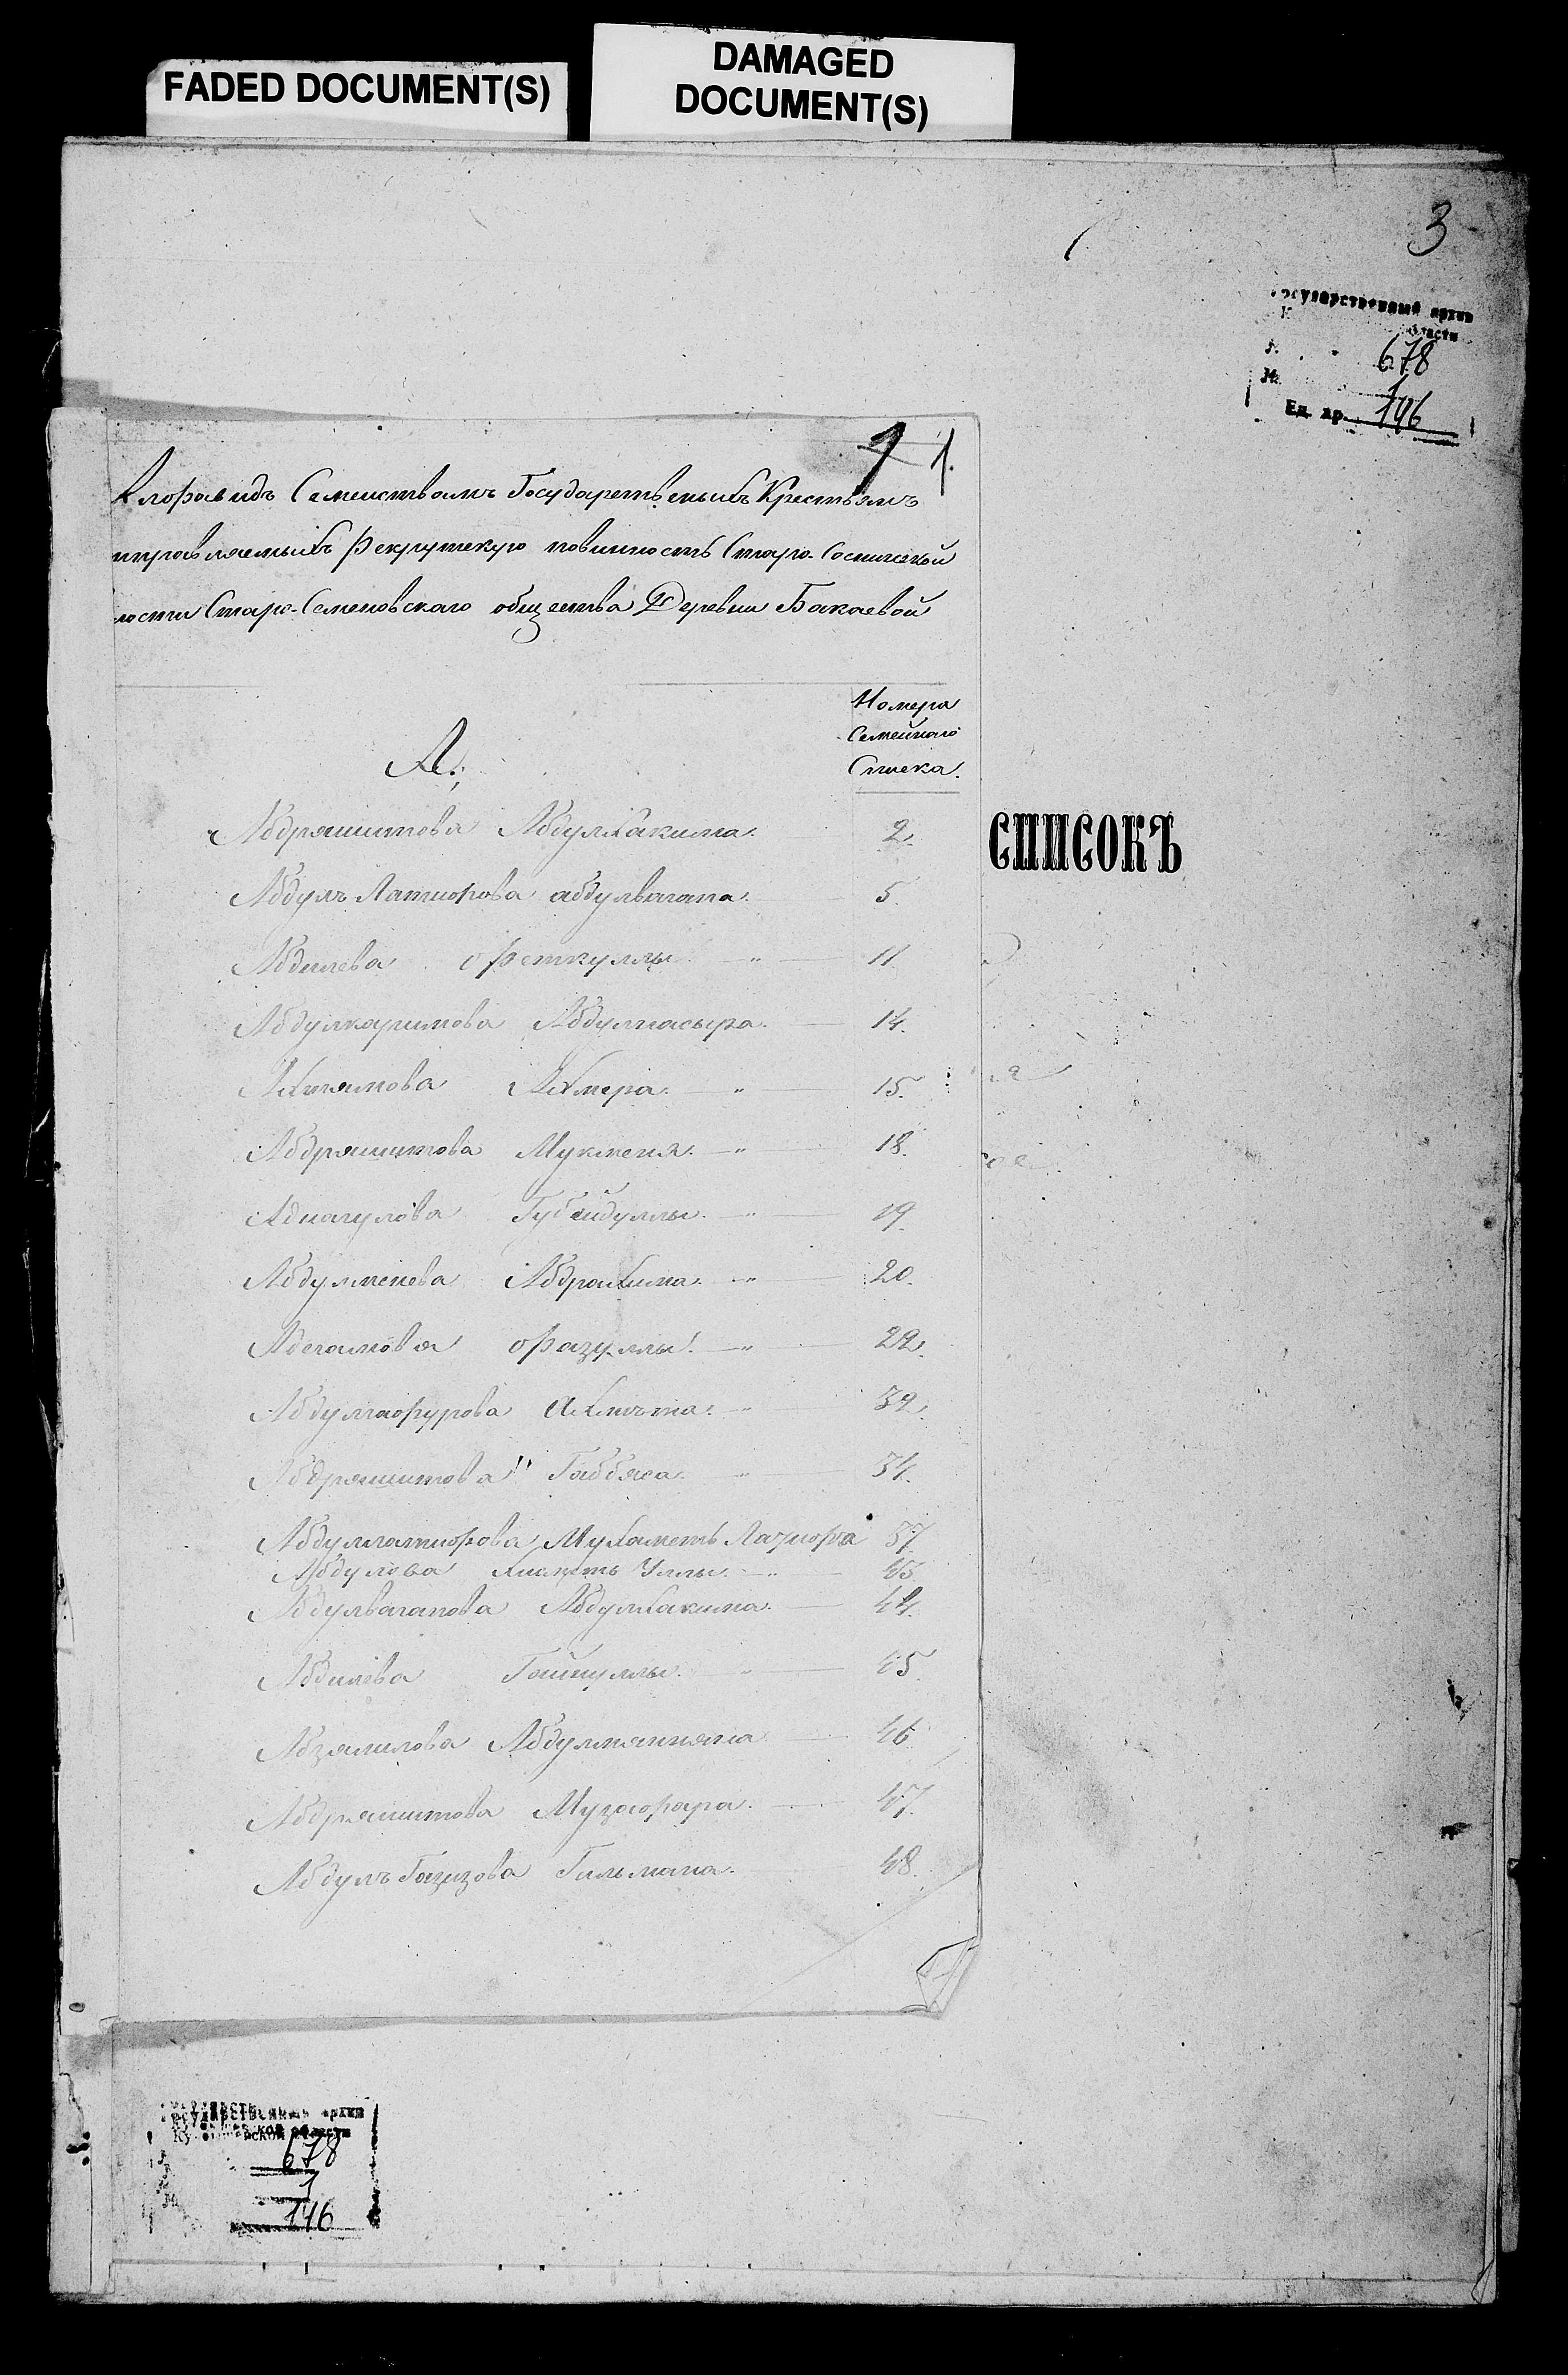 FADED DOCUMENT(S)
DAMAGED
DOCUMENT(S)
3
Государственный архив
области
678
1
Ед. хр. 146
1 1.
Алфавидъ Семействамъ Государственыхъ Крестьянъ
отправляемыхъ Рекрутскую повинность Старо-Соснинской
лости Старо-Семеновскаго общества Деревни Бакаевой
Номера
Семейнаго
Списка.
А.
Абдряшитова Абдулхакима. 2.
Абдулъ Латифова абдулвагапа. 5.
Абдилева Феткуллы " 11.
Абдулкаримова Абдулнасыра. 14.
Ахтямова Ахмера. " 15.
Абдряшитова Мукменя. " 18.
Адналулова Губейдуллы. " 19.
Абдулменева Абдрахима. " 20.
Абдегамова Фазуллы. " 22.
Абдулгафурова Ахмета. " 32.
Абдряшитова " Габбяса. " 34.
Абдуллатифова Мухаметь Латифа 37
Абдулова Хиаметь Уллы. "
Абдулвагапова Абдулхакима. 44.
Абдилева Гайнуллы. " 45.
Абзялилова Абдулмянняна 46
Абдряшитова Музафара. 47.
Абдулъ Газизова Гильмана. 48.
СПИСОКЪ
Государственный архив
Куйбышевской области
678
1
146